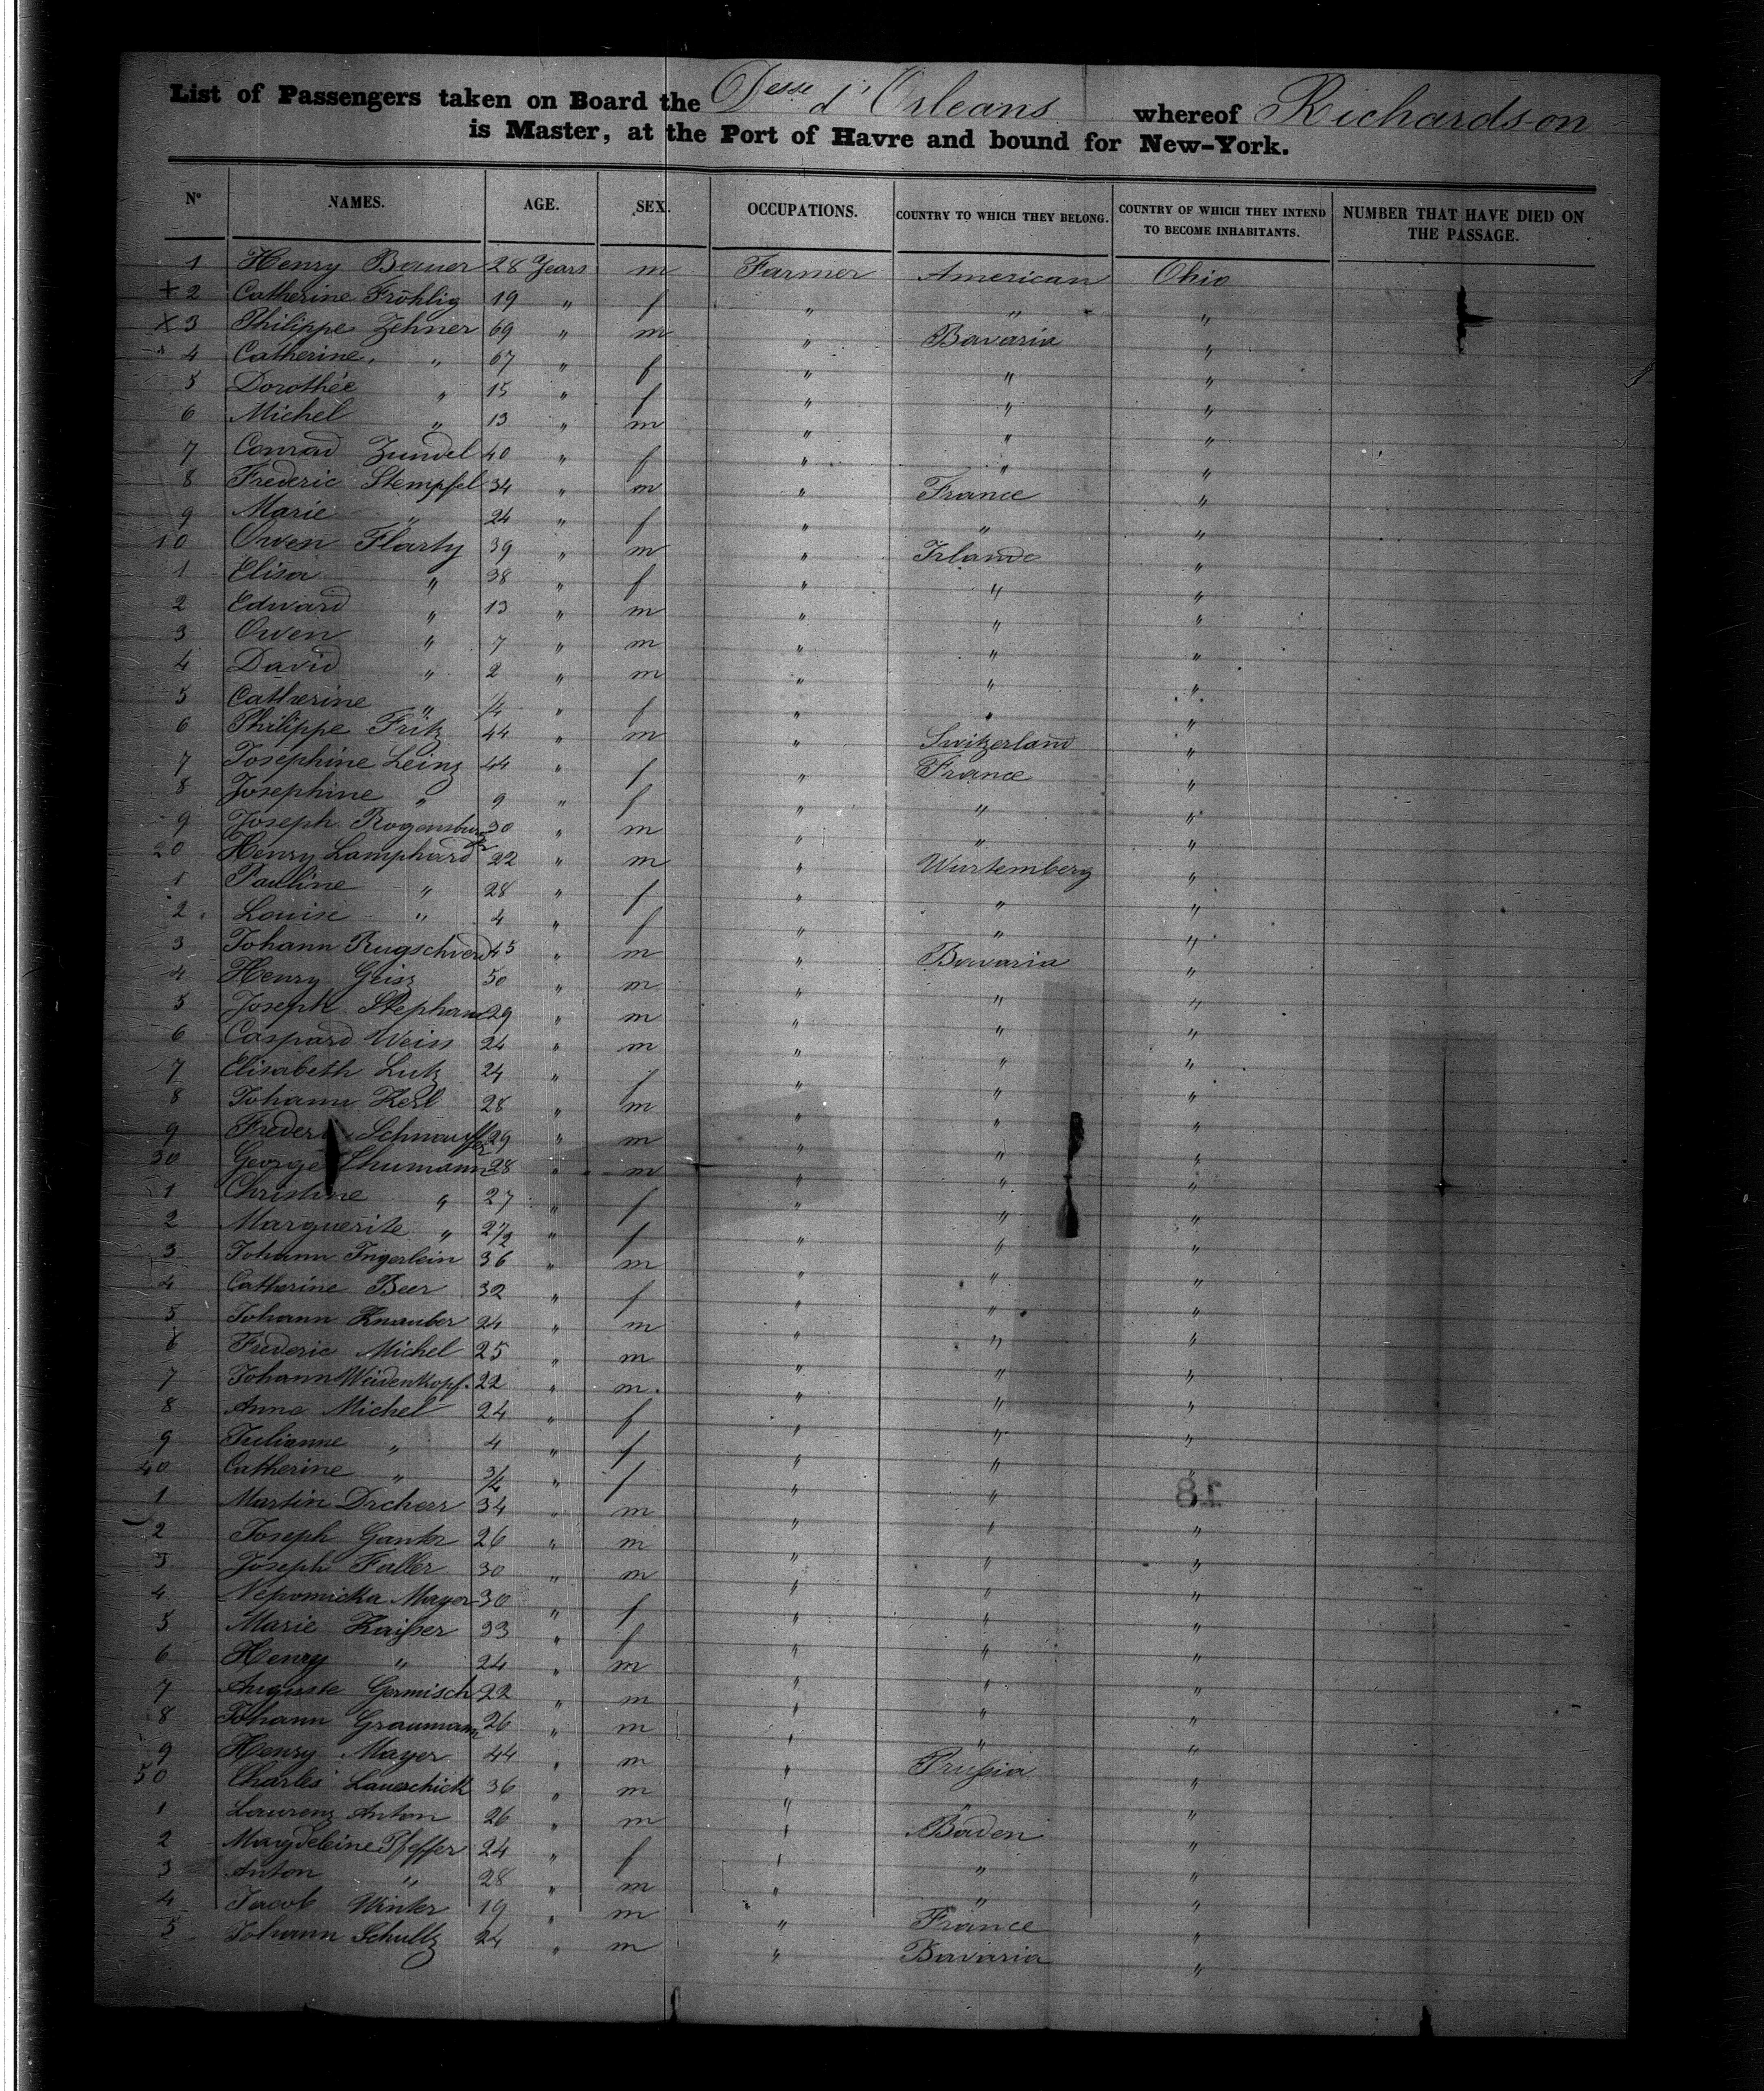 List of Passengers taken on Board the Desse d'Orleans whereof Richardson
is Master, at the Port of Havre and bound for New-York.
N° NAMES. AGE. SEX. OCCUPATIONS. COUNTRY TO WHICH THEY BELONG. COUNTRY OF WHICH THEY INTEND TO BECOME INHABITANTS. NUMBER THAT HAVE DIED ON THE PASSAGE.
1 Henry Bauer 28 Years m Farmer American Ohio
x 2 Catherine Fröhlig 19 " f " " "
x 3 Philippe Zehner 69 " m " Bavaria "
x 4 Catherine " 67 " f " " "
5 Dorothée " 15 " f " " "
6 Michel " 13 " m " " "
7 Conrad Zundel 40 " f " " "
8 Frederic Stempfel 34 " m " France "
9 Marie " 24 " f " " "
10 Owen Flarty 39 " m " Irlande "
1 Elisa " 38 " f " " "
2 Edward " 13 " m " " "
3 Owen " 7 " m " " "
4 David " 2 " m " " "
5 Catherine " 1/4 " f " " "
6 Philippe Fritz 44 " m " Switzerland "
7 Josephine Leinz 44 " f " France "
8 Josephine " 9 " f " " "
9 Joseph 30 " m " " "
20 Henry Lamphard 22 " m " Wurtemberg "
1 Pauline " 28 " f " " "
2 Louise " 4 " f " " "
3 Johann 45 " m " Bavaria "
4 Henry Geisz 50 " m " " "
5 Joseph Stephan 29 " m " " "
6 Caspard Weiss 24 " m " " "
7 Elisabeth Lutz 24 " f " " "
8 Johann Kerl 28 " m " " "
9 Schnauffer 29 " m " " "
30 George Thumann 28 " m " " "
1 Christine " 27 " f " " "
2 Marguerite " 2 1/2 " f " " "
3 Johann Ingerlein 36 " m " " "
4 Catherine Beer 32 " f " " "
5 Johann Knauber 24 " m " " "
6 Frederic Michel 25 " m " " "
7 Johann Weidenkopf. 22 " m " " "
8 Anne Michel 24 " f " " "
9 Julianne " 4 " f " " "
40 Catherine " 3/4 " f " " "
1 Martin Drcherr 34 " m " " "
2 Joseph Ganter 26 " m " " "
3 Joseph Faller 30 " m " " "
4 Nepomicka Mayer 30 " f " " "
5 Marie Kaiſser 33 " f " " "
6 Henry " 24 " m " " "
7 Auguste Germisch 22 " m " " "
8 Johann Graumann 26 " m " " "
9 Henry Mayer 44 " m " Pruſsia "
50 Charles Lauerchick 36 " m " " "
1 Laurenz Anton 26 " m " Baden "
2 Magdeleine Pfeffer 24 " f " " "
3 Anton " 28 " m " " "
4 Jacob Winter 19 " m " France "
5 Johann Schultz 24 " m " Bavaria "
18